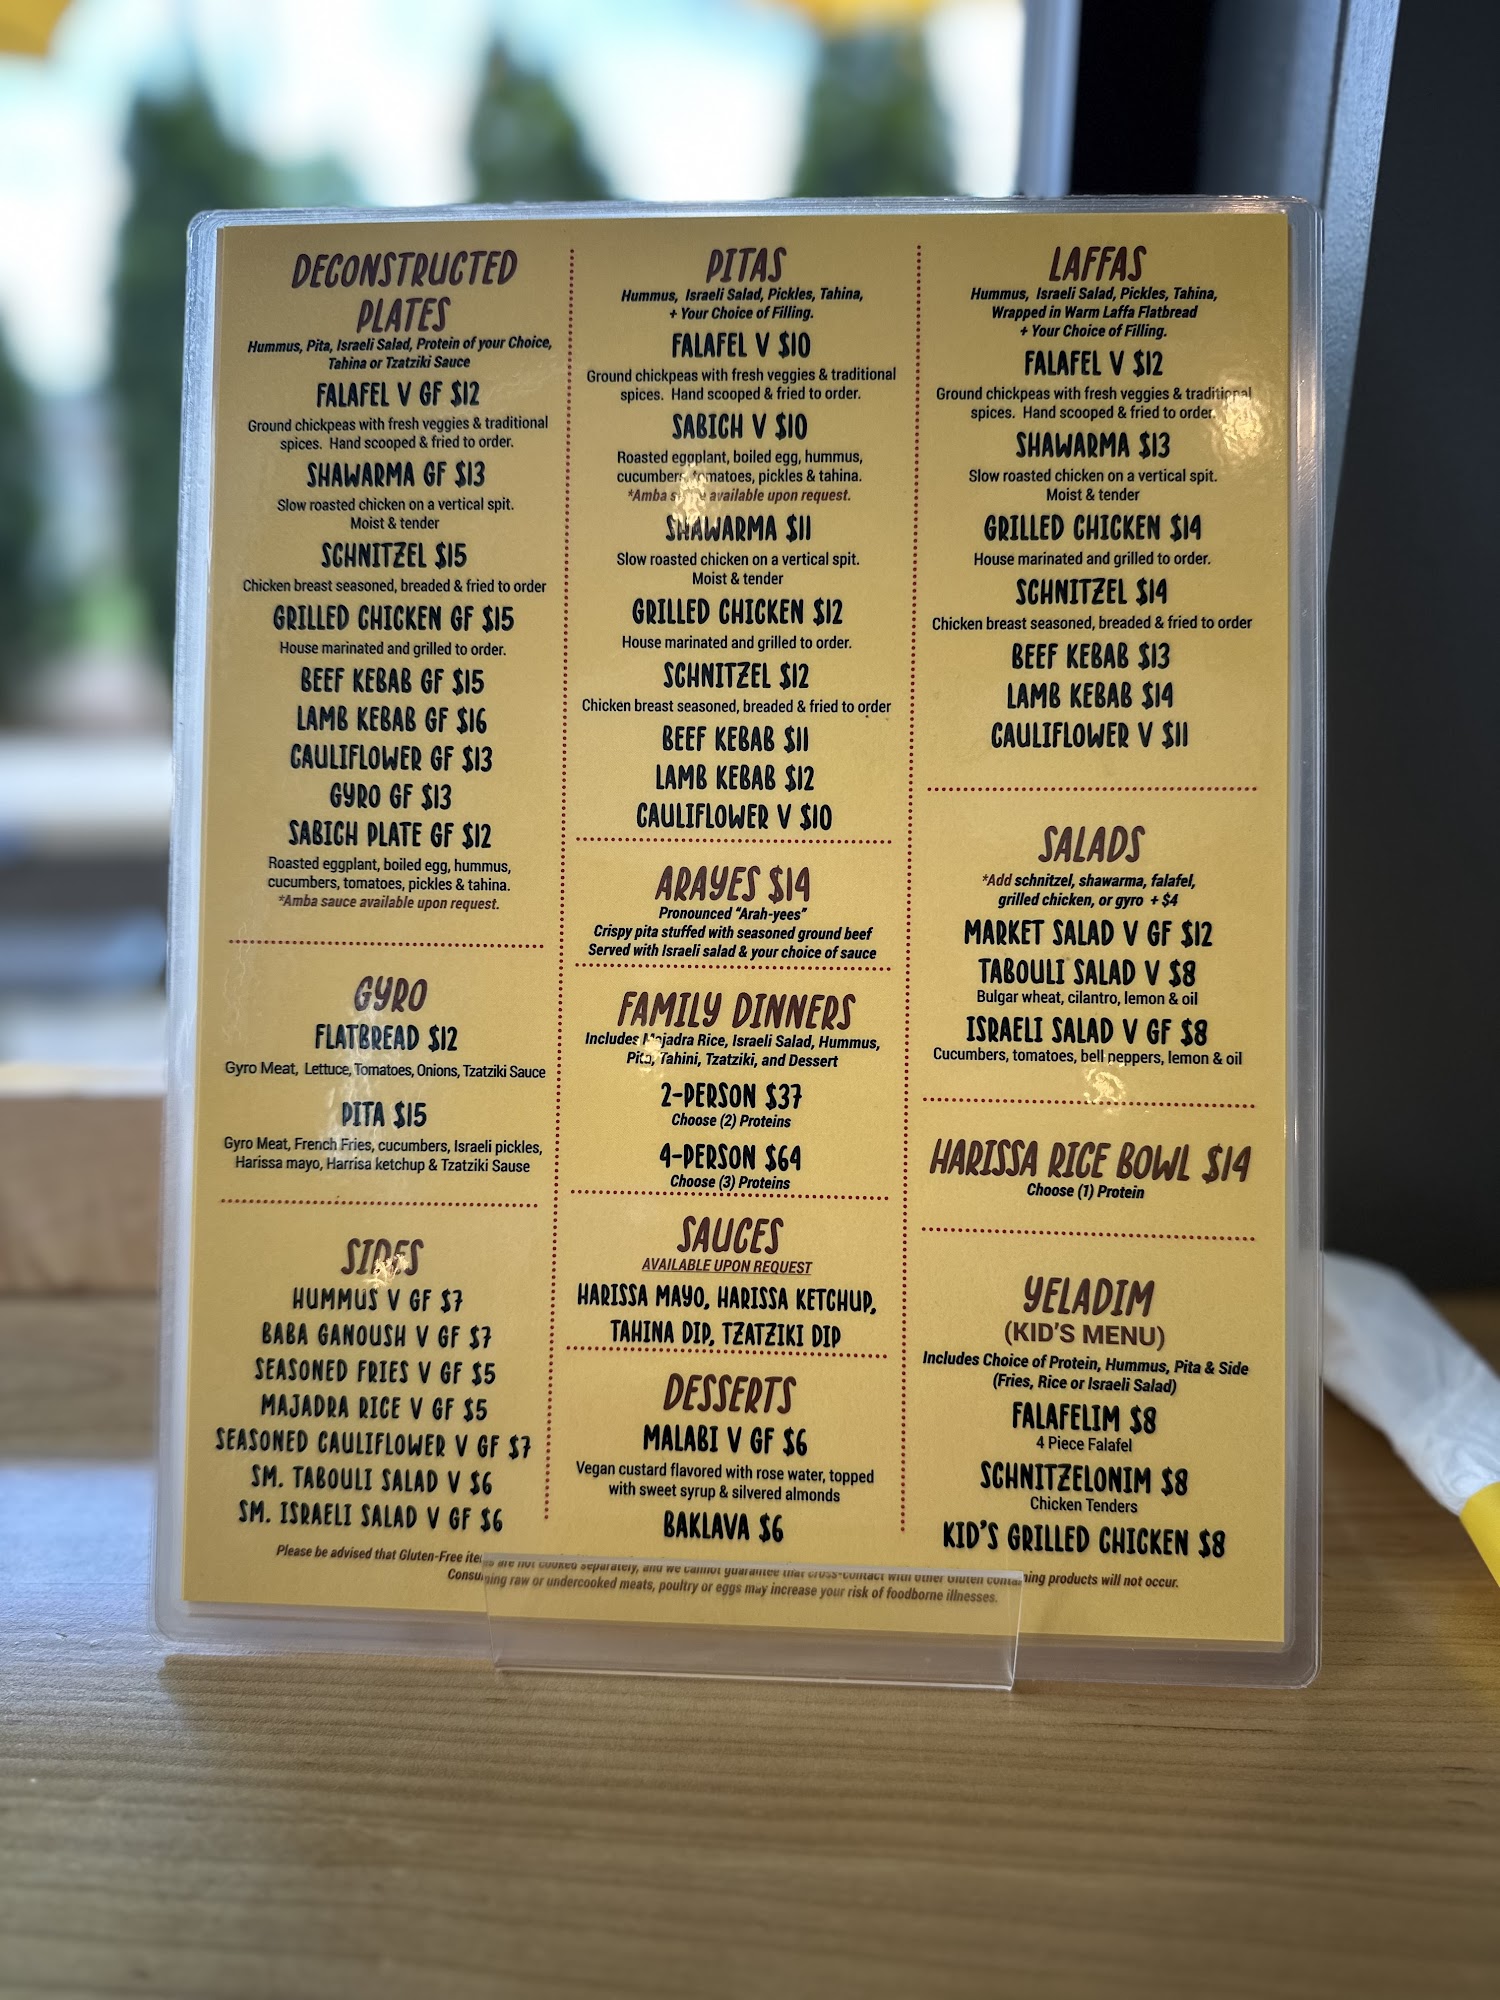 DECONSTRUCTED
PLATES
Hummus, Pita, Israeli Salad, Protein of your Choice,
Tahina or Tzatziki Sauce
FALAFEL V GF $12
Ground chickpeas with fresh veggies & traditional
spices. Hand scooped & fried to order.
SHAWARMA GF $13
Slow roasted chicken on a vertical spit.
Moist & tender
SCHNITZEL $15
Chicken breast seasoned, breaded & fried to order
GRILLED CHICKEN GF $15
House marinated and grilled to order.
BEEF KEBAB GF $15
LAMB KEBAB GF $16
CAULIFLOWER GF $13
GYRO GF $13
SABICH PLATE GF $12
Roasted eggplant, boiled egg, hummus,
cucumbers, tomatoes, pickles & tahina.
*Amba sauce available upon request.
GYRO
FLATBREAD $12
Gyro Meat, Lettuce, Tomatoes, Onions, Tzatziki Sauce
PITA $15
Gyro Meat, French Fries, cucumbers, Israeli pickles,
Harissa mayo, Harrisa ketchup & Tzatziki Sause
SIDES
HUMMUS V GF $7
BABA GANOUSH V GF $7
SEASONED FRIES V GF $5
MAJADRA RICE V GF $5
SEASONED CAULIFLOWER V GF $7
SM. TABOULI SALAD V $6
SM. ISRAELI SALAD V GF $6
PITAS
Hummus, Israeli Salad, Pickles, Tahina,
+ Your Choice of Filling.
FALAFEL V $10
Ground chickpeas with fresh veggies & traditional
spices. Hand scooped & fried to order.
SABICH V $10
Roasted eggplant, boiled egg, hummus,
cucumbers, tomatoes, pickles & tahina.
*Amba sauce available upon request.
SHAWARMA $11
Slow roasted chicken on a vertical spit.
Moist & tender
GRILLED CHICKEN $12
House marinated and grilled to order.
SCHNITZEL $12
Chicken breast seasoned, breaded & fried to order
BEEF KEBAB $11
LAMB KEBAB $12
CAULIFLOWER V $10
ARAYES $14
Pronounced "Arah-yees"
Crispy pita stuffed with seasoned ground beef
Served with Israeli salad & your choice of sauce
FAMILY DINNERS
Includes Majadra Rice, Israeli Salad, Hummus,
Pita, Tahini, Tzatziki, and Dessert
2-PERSON $37
Choose (2) Proteins
4-PERSON $64
Choose (3) Proteins
SAUCES
AVAILABLE UPON REQUEST
HARISSA MAYO, HARISSA KETCHUP,
TAHINA DIP, TZATZIKI DIP
DESSERTS
MALABI V GF $6
Vegan custard flavored with rose water, topped
with sweet syrup & silvered almonds
BAKLAVA $6
LAFFAS
Hummus, Israeli Salad, Pickles, Tahina,
Wrapped in Warm Laffa Flatbread
+ Your Choice of Filling.
FALAFEL V $12
Ground chickpeas with fresh veggies & traditional
spices. Hand scooped & fried to order.
SHAWARMA $13
Slow roasted chicken on a vertical spit.
Moist & tender
GRILLED CHICKEN $14
House marinated and grilled to order.
SCHNITZEL $14
Chicken breast seasoned, breaded & fried to order
BEEF KEBAB $13
LAMB KEBAB $14
CAULIFLOWER V $11
SALADS
*Add schnitzel, shawarma, falafel,
grilled chicken, or gyro + $4
MARKET SALAD V GF $12
TABOULI SALAD V $8
Bulgar wheat, cilantro, lemon & oil
ISRAELI SALAD V GF $8
Cucumbers, tomatoes, bell peppers, lemon & oil
HARISSA RICE BOWL $14
Choose (1) Protein
YELADIM
(KID'S MENU)
Includes Choice of Protein, Hummus, Pita & Side
(Fries, Rice or Israeli Salad)
FALAFELIM $8
4 Piece Falafel
SCHNITZELONIM $8
Chicken Tenders
KID'S GRILLED CHICKEN $8
Please be advised that Gluten-Free items are not cooked separately, and we cannot guarantee that cross-contact with other Gluten containing products will not occur.
Consuming raw or undercooked meats, poultry or eggs may increase your risk of foodborne illnesses.